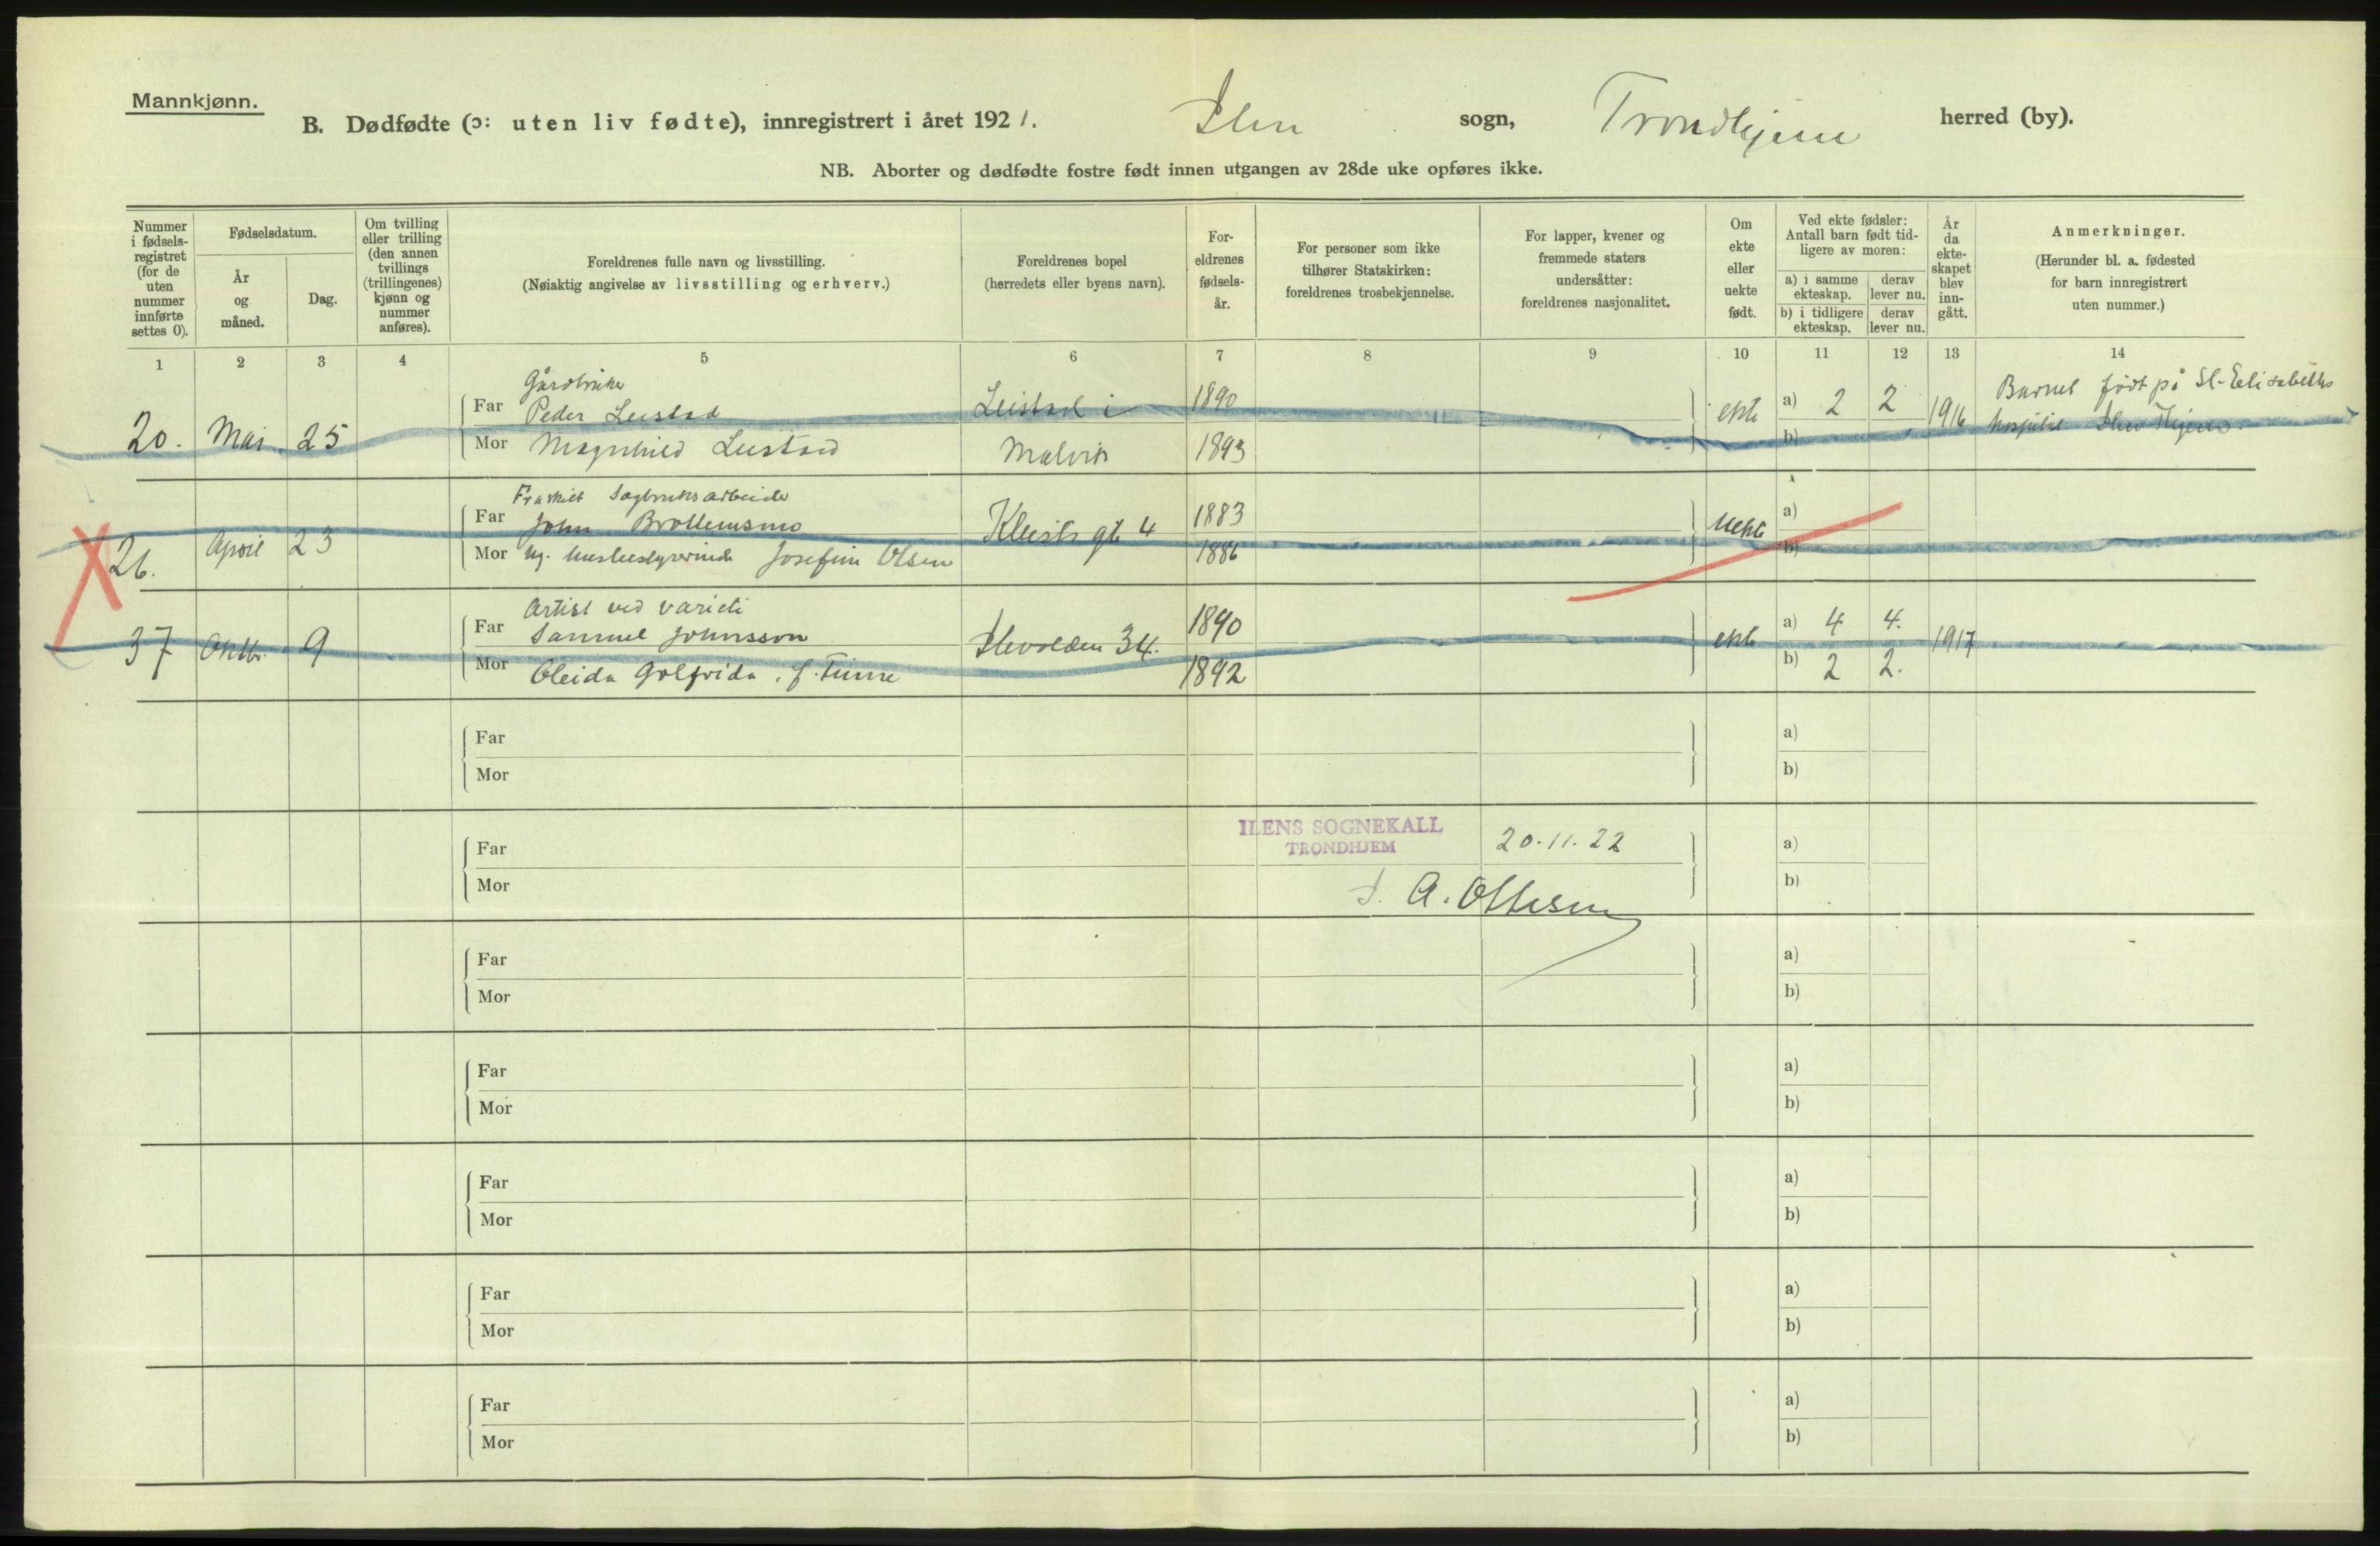 Mannkjønn.
B. Dødfødte (ɔ: uten liv fødte), innregistrert i året 1921. Ilen sogn, Trondhjem herred (by).
NB. Aborter og dødfødte fostre født innen utgangen av 28de uke opføres ikke.
Nummer i fødsels- registret (for de uten nummer innførte settes 0).
Fødselsdatum.
År og måned.
Dag.
Om tvilling eller trilling (den annen tvillings (trillingenes) kjønn og nummer anføres).
Foreldrenes fulle navn og livsstilling.
(Nøiaktig angivelse av livsstilling og erhverv.)
Foreldrenes bopel
(herredets eller byens navn).
For- eldrenes fødsels- år.
For personer som ikke tilhører Statskirken: foreldrenes trosbekjennelse.
For lapper, kvener og fremmede staters undersåtter: foreldrenes nasjonalitet.
Om ekte eller uekte født.
Ved ekte fødsler: Antall barn født tid- ligere av moren:
a) i samme ekteskap.
derav lever nu.
b) i tidligere ekteskap.
derav lever nu.
År da ekte- skapet blev inn- gått.
Anmerkninger.
(Herunder bl. a. fødested for barn innregistrert uten nummer.)
1 2 3 4 5 6 7 8 9 10 11 12 13 14
Gårdbruker
20. Mai 25 Far Peder Leistad Leistad i 1890 ekte a) 2 2 1916 Barnet født på St. Elisabeths
Mor Magnhild Leistad Malvik 1893 b) hospital
Fraskilt Sagbruksarbeider
26. April 23 Far John Brottemsmo Kleists gt 4 1883 uekte a)
Mor Ug. husbestyrerinde Josefine Olsen 1886 b)
Artist ved varieté
37 Oktbr. 9 Far Samuel Johnsson Ilevolden 34. 1890 ekte a) 4 4. 1917
Mor Golfrida, f. 1892 b) 2 2.
Far a)
Mor b)
ILENS SOGNEKALL
TRONDHJEM
20.11.22
Far a)
Mor b)
A. Ottesen
Far a)
Mor b)
Far a)
Mor b)
Far a)
Mor b)
Far a)
Mor b)
Far a)
Mor b)